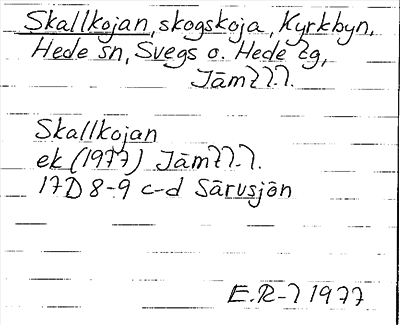 Skallkojan, skogskoja, Kyrkbyn,
Hede sn, Svegs o. Hede tg,
Jämtl.l.
Skallkojan
ek (1977) Jämtl.l.
17D 8-9 c-d Särvsjön
E.R-l 1977